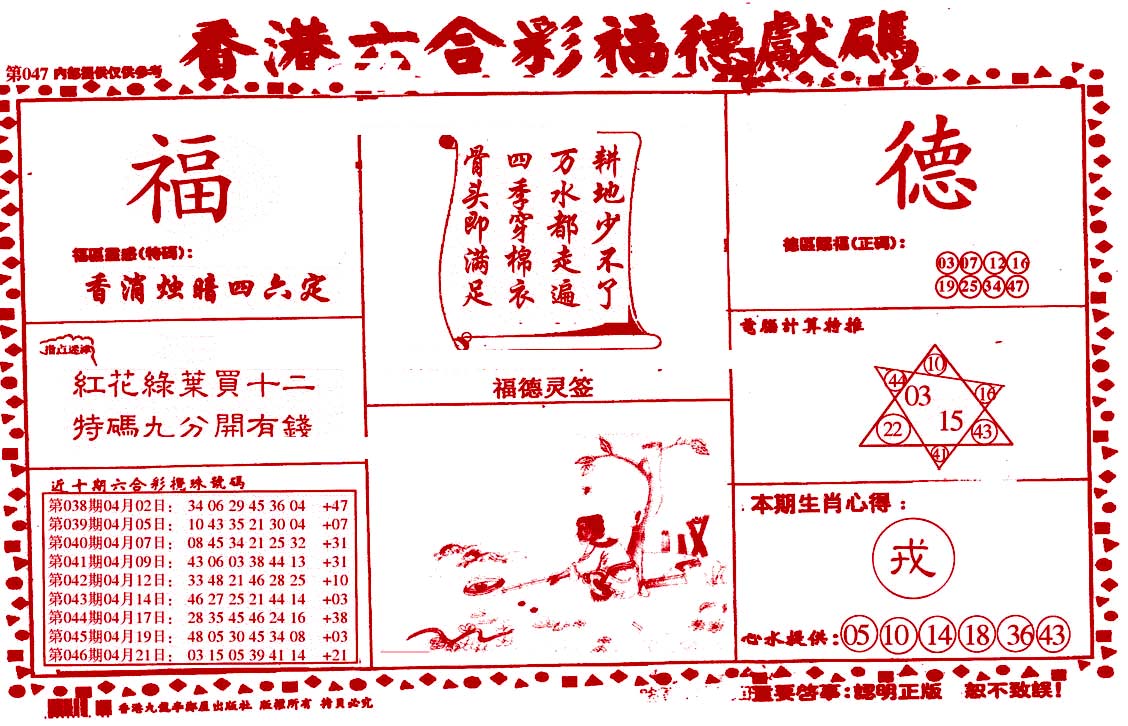 香港六合彩福德獻碼
第047 内部提供仅供参考
福
福區靈感(特碼):
香消烛暗四六定
指点迷津
紅花綠葉買十二
特碼九分開有錢
近十期六合彩攪珠號碼
第038期04月02日: 34 06 29 45 36 04 +47
第039期04月05日: 10 43 35 21 30 04 +07
第040期04月07日: 08 45 34 21 25 32 +31
第041期04月09日: 43 06 03 38 44 13 +31
第042期04月12日: 33 48 21 46 28 25 +10
第043期04月14日: 46 27 25 21 44 14 +03
第044期04月17日: 28 35 45 46 24 16 +38
第045期04月19日: 48 05 30 45 34 08 +03
第046期04月21日: 03 15 05 39 41 14 +21
耕地少不了
万水都走遍
四季穿棉衣
骨头即满足
福德灵签
德
德區賜福(正碼):
03 07 12 16
19 25 34 47
電腦計算特推
10
44 03 16
22 15 43
41
本期生肖心得:
戎
心水提供: 05 10 14 18 36 43
重要啓事:認明正版 恕不致誤!
版權所有